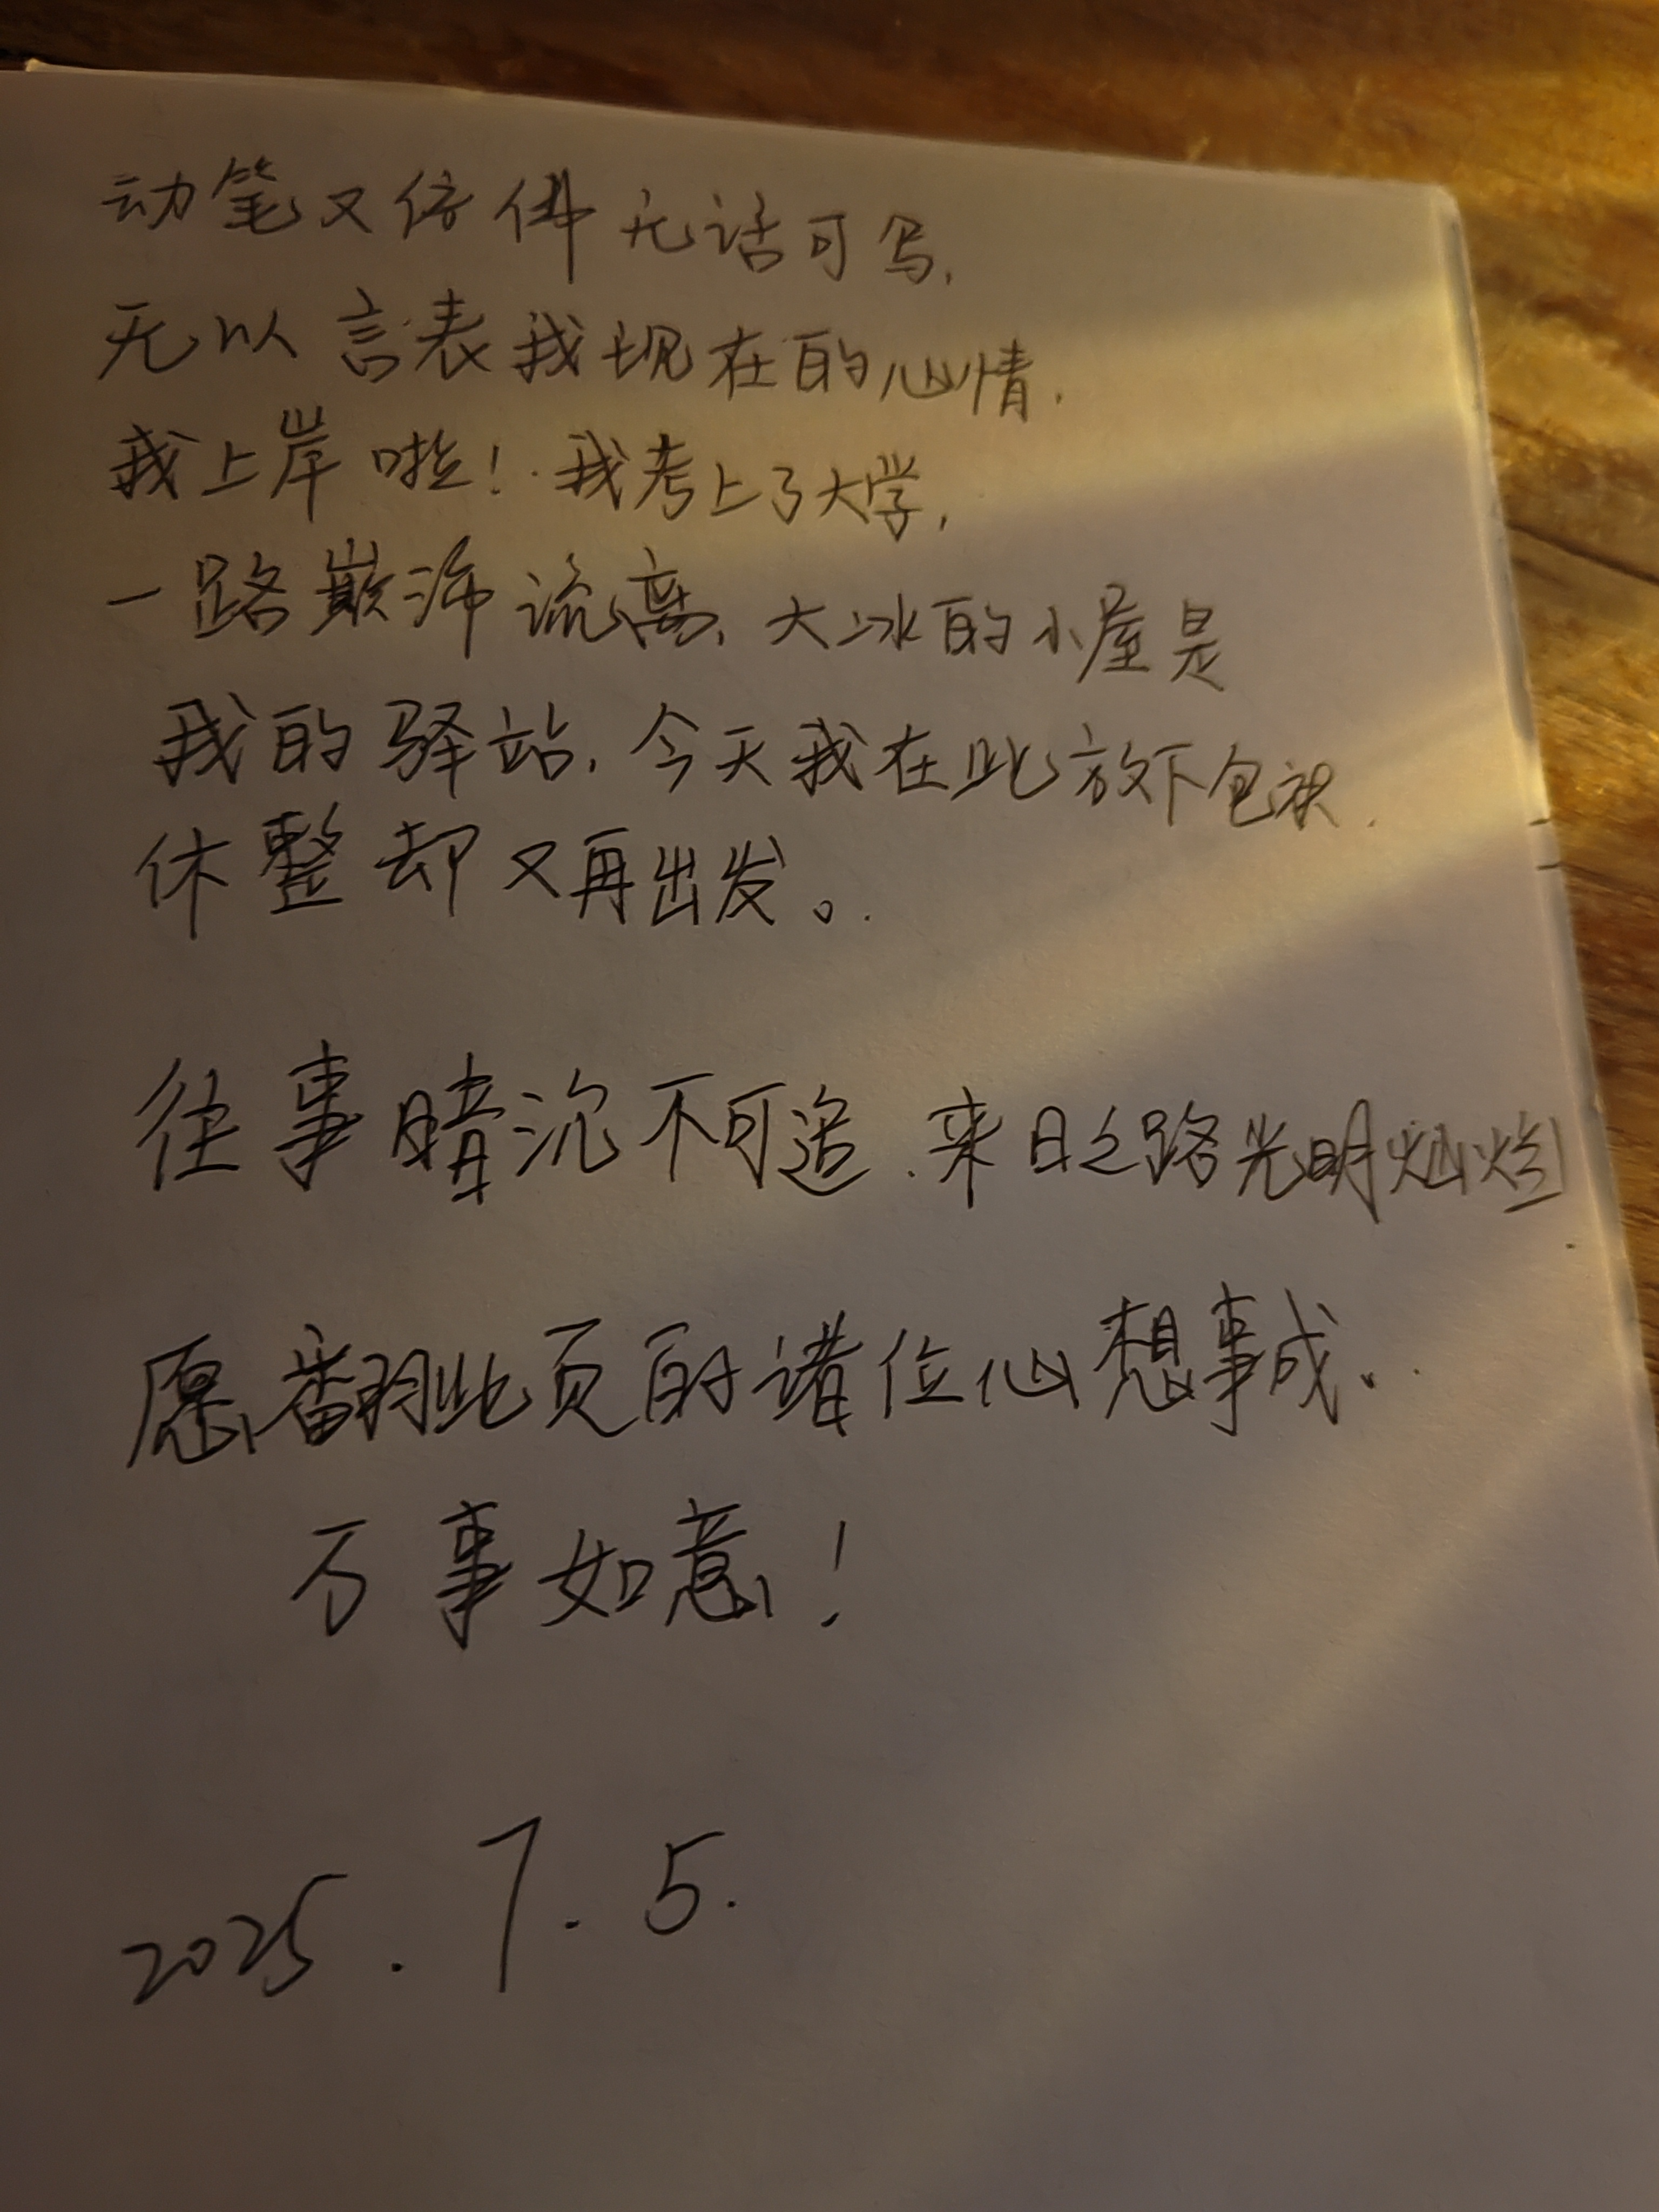 动笔又仿佛无话可写,
无以言表我现在的心情.
我上岸啦!.我考上了大学,
一路巅沛流离,大冰的小屋是
我的驿站,今天我在此放下包袱.
休整却又再出发。
往事暗沉不可追.来日之路光明灿烂.
愿翻此页的诸位心想事成.
万事如意!
2025.7.5.